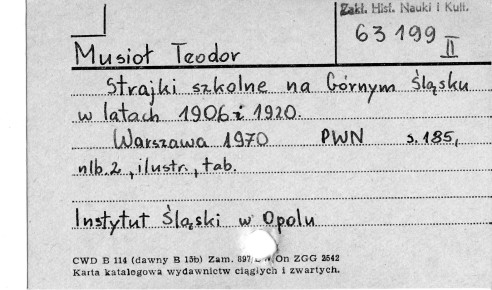 Zakł. Hist. Nauki i Kult.
63199
II
Musioł Teodor
Strajki szkolne na Górnym Śląsku
w latach 1906 i 1920.
Warszawa 1970 PWN s. 185,
nlb. 2, ilustr., tab.
Instytut Śląski w Opolu
CWD B 114 (dawny B 15b) Zam. 897 On ZGG 2542
Karta katalogowa wydawnictw ciągłych i zwartych.